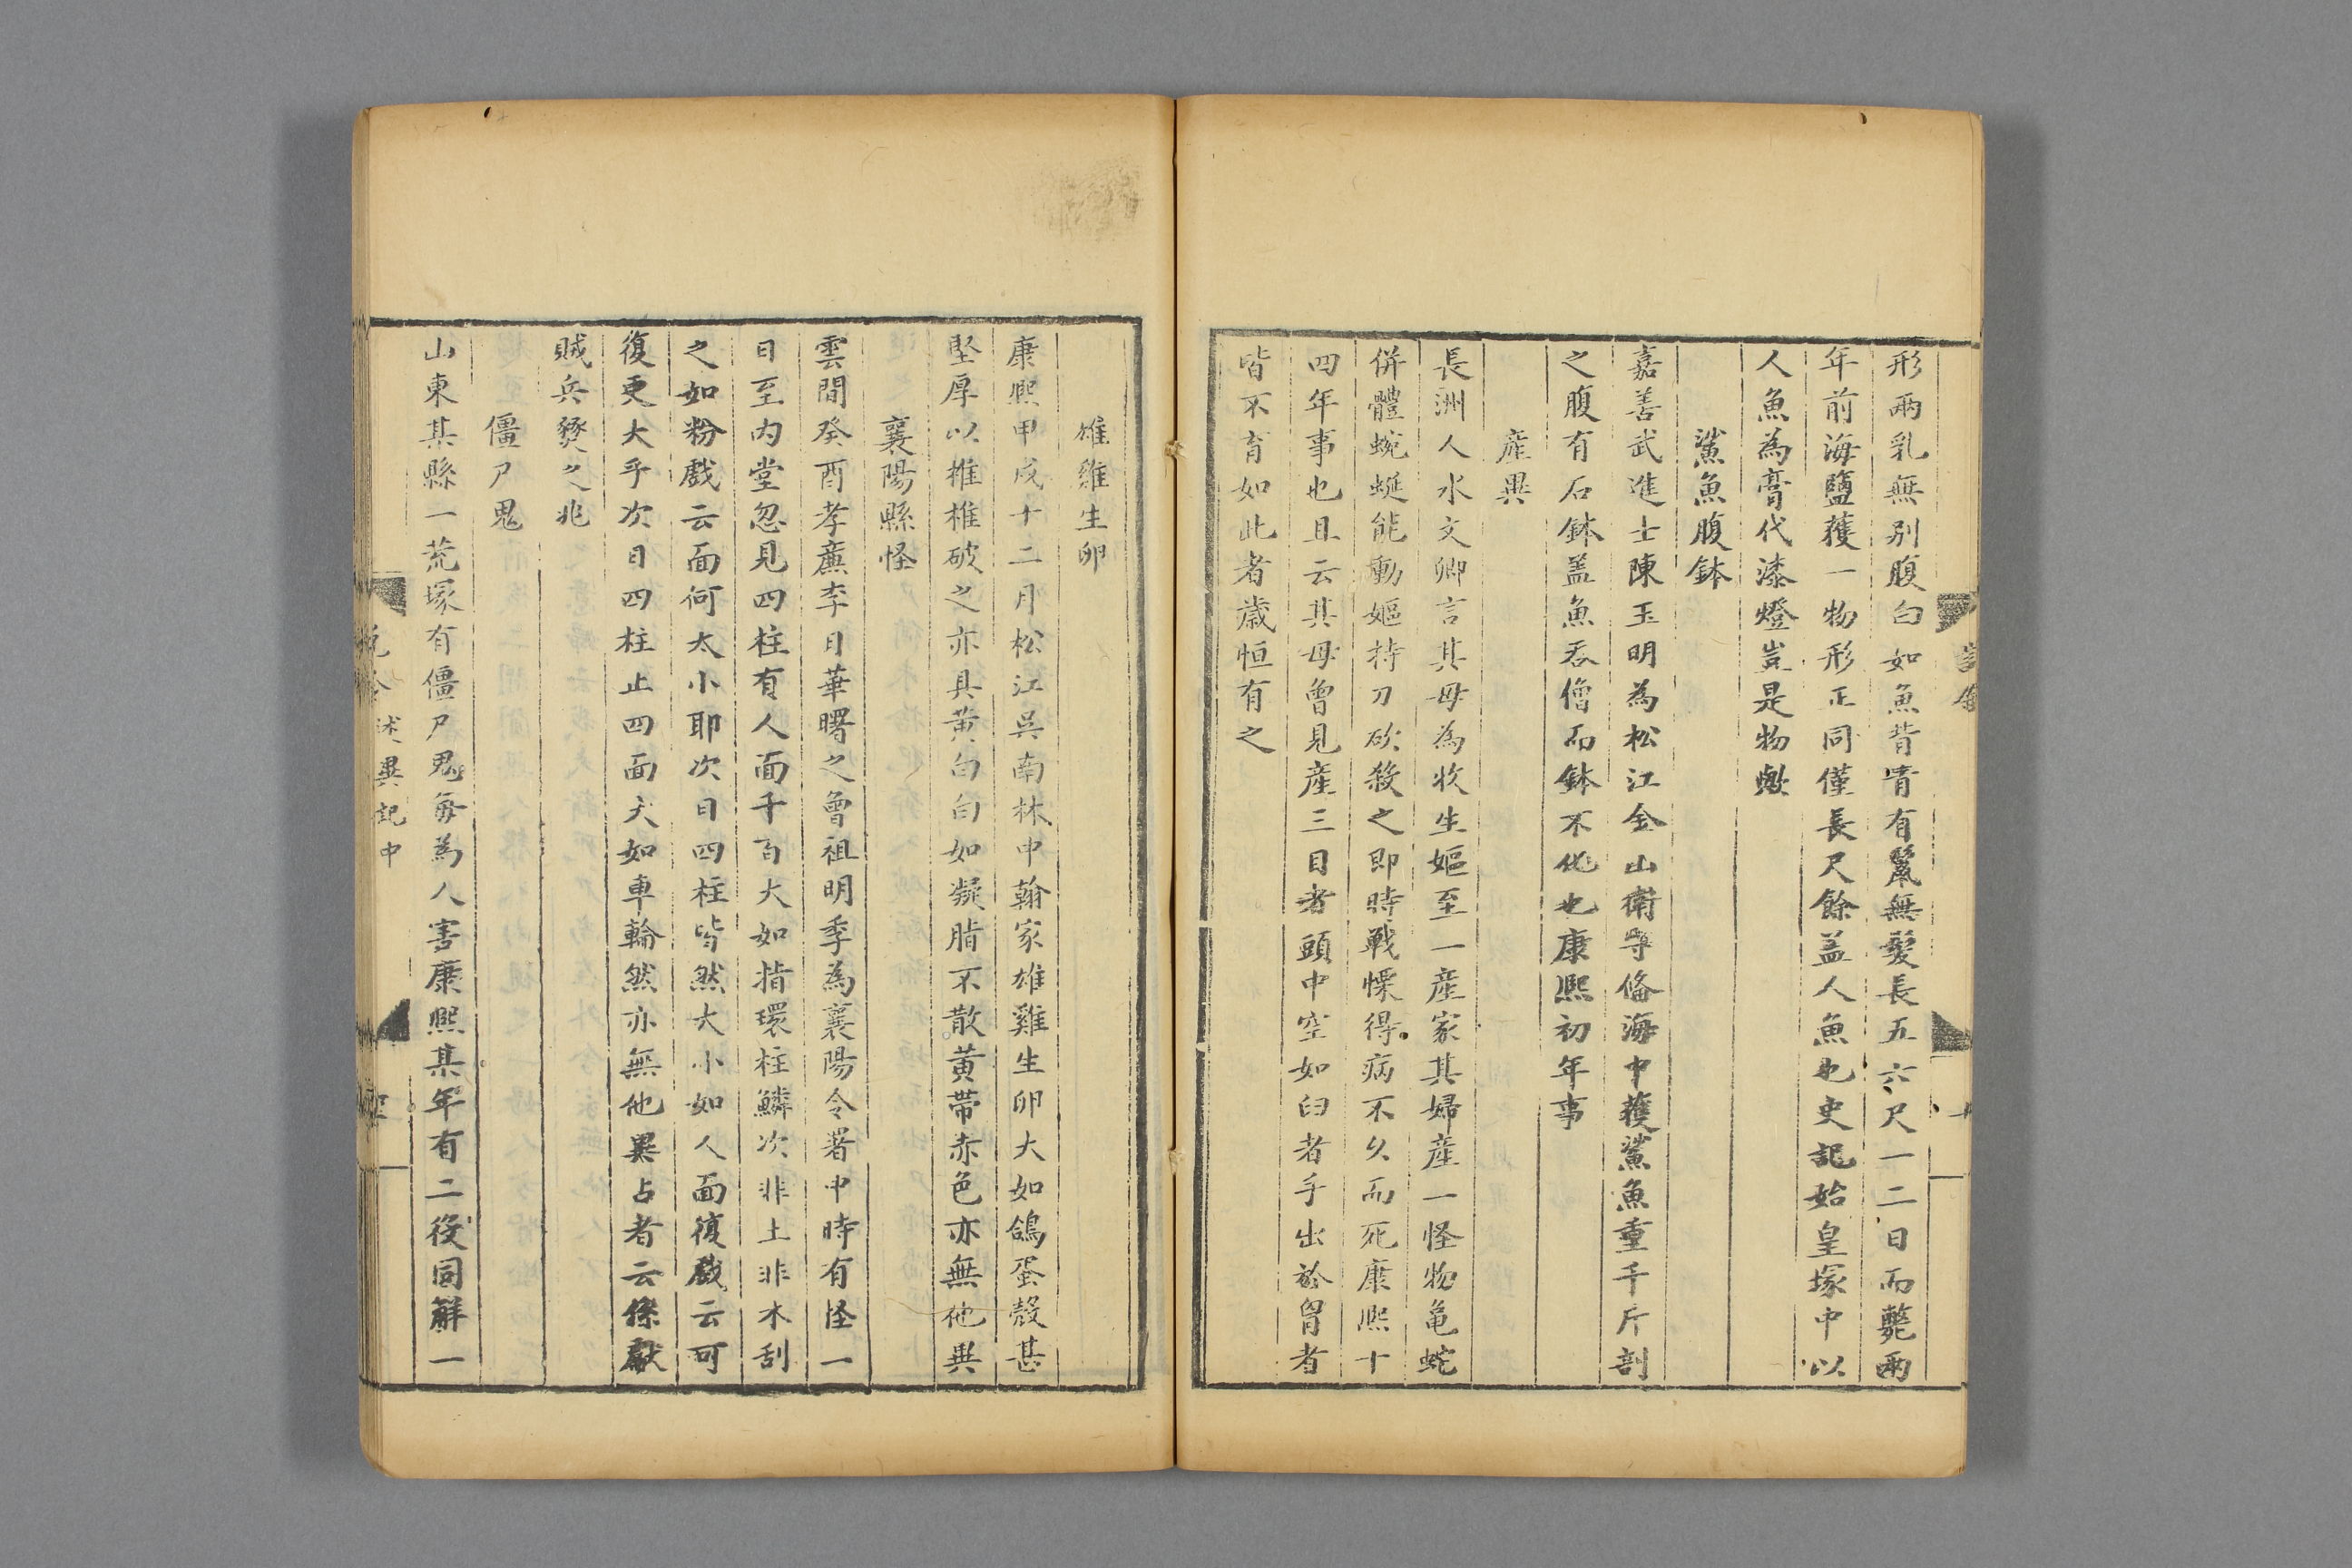 形兩乳無别腹白如魚背脊有鬣無髮長五六尺一二日而斃兩
年前海鹽獲一物形正同僅長尺餘盖人魚也史記始皇塚中以
人魚為膏代漆燈豈是物歟
鯊魚腹鉢
嘉善武進士陳玉明為松江金山衛守俻海中獲鯊魚重千斤剖
之腹有石鉢盖魚吞僧而鉢不化也康熙初年事
産異
長洲人水文卿言其母為收生嫗至一産家其婦産一怪物龜蛇
併體蜿蜒能動嫗持刀砍殺之即時戰慄得病不久而死康熙十
四年事也且云其母曾見産三目者頭中空如臼者手出於胷者
皆不育如此者歲恒有之
雄雞生卵
康熙甲戌十二月松江吳南林中翰家雄雞生卵大如鴿蛋殼甚
堅厚以椎椎破之亦具黄白白如凝脂不散黄帶赤色亦無他異
襄陽縣怪
雲間癸酉孝廉李日華曙之曾祖明季為襄陽令署中時有怪一
日至内堂忽見四柱有人面千百大如指環柱鱗次非土非木刮
之如粉戲云面何太小耶次日四柱皆然大小如人面復戲云可
復更大乎次日四柱止四面大如車輪然亦無他異占者云係獻
賊兵燹之兆
僵尸鬼
山東某縣一荒塚有僵尸鬼每為人害康熙某年有二役同解一
述異記中